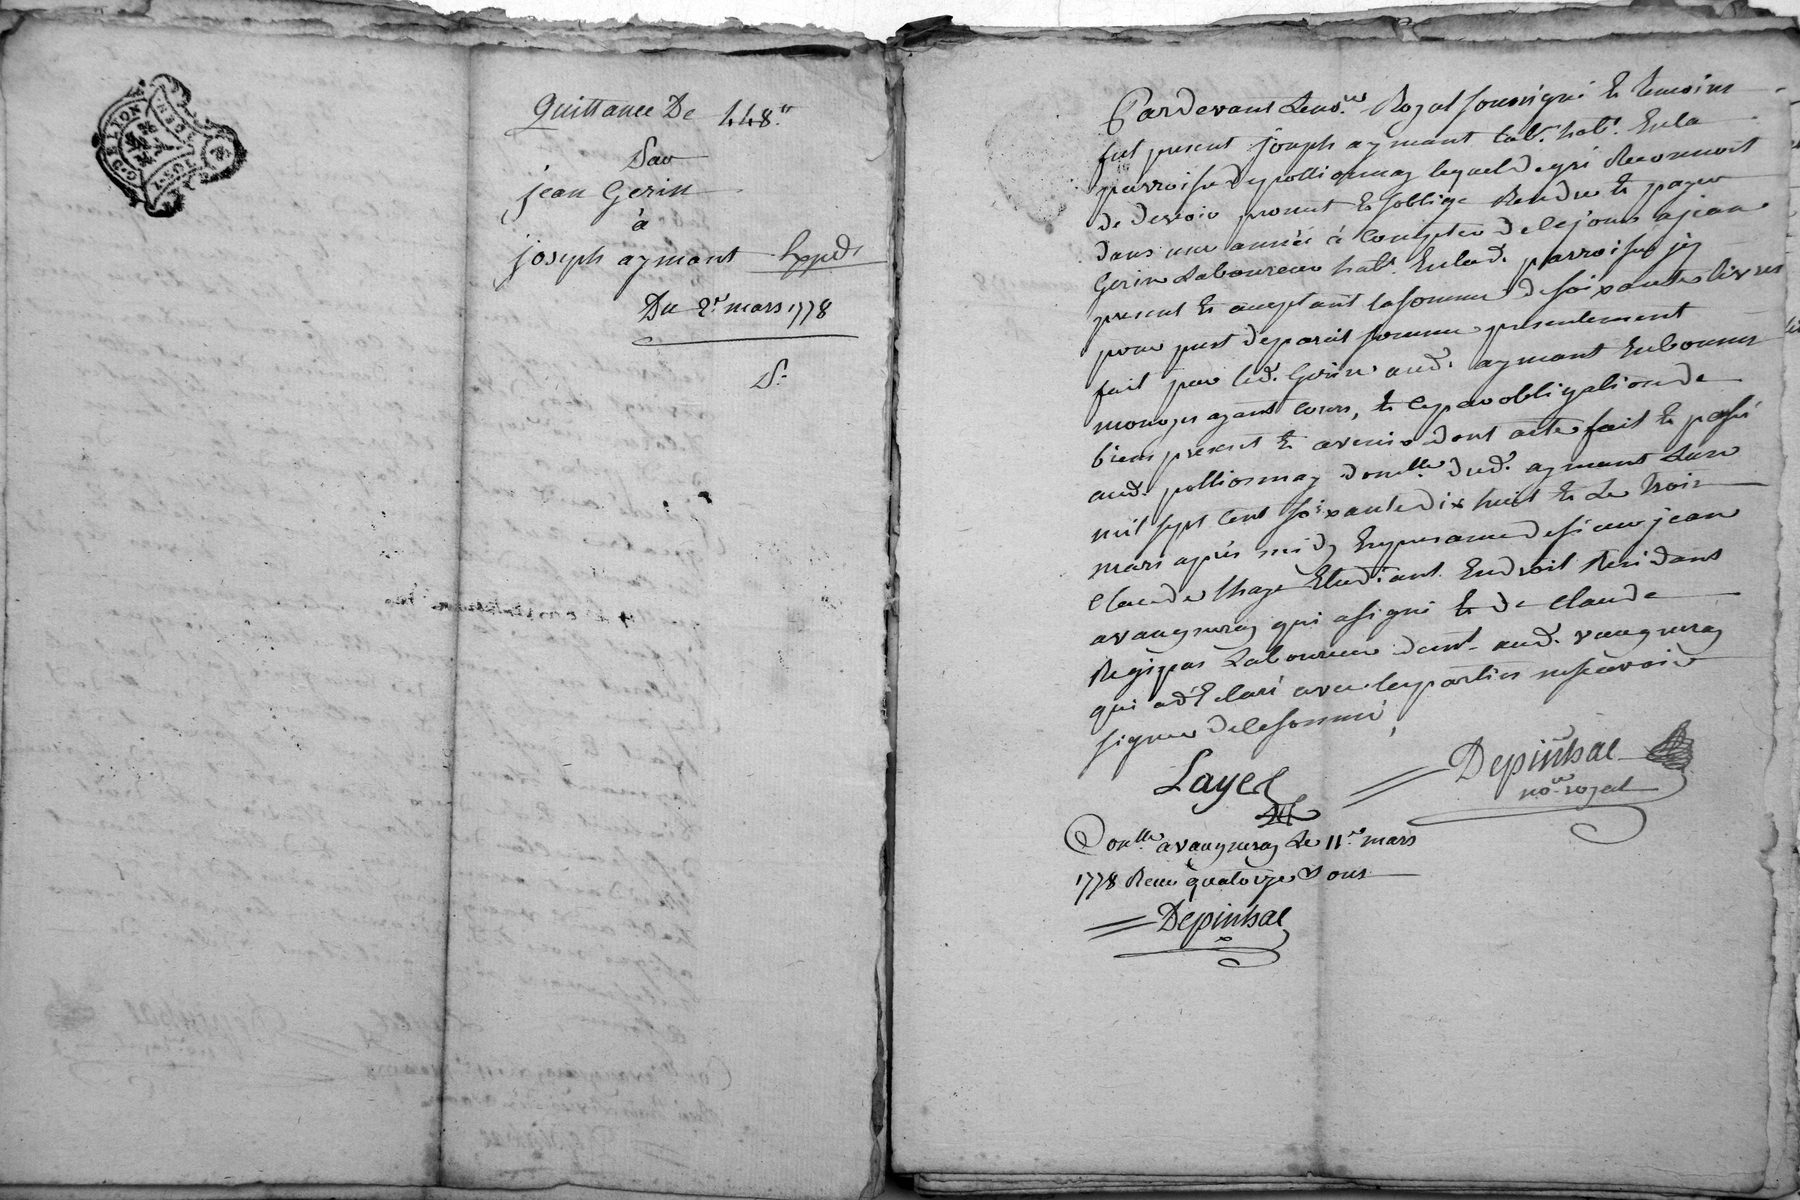 G. DE LYON
Quittance De 448.tt
Par
jean Gerin
à
joseph aymant Exped.
Du 2.e mars 1778
S.
Pardevant Leno.re Royal soussigné Et temoins
fut present joseph aymant lab.r hab.t En la
parroisse de pollionnay lequel de gré Reconnoit
de devoir promet Et soblige Rendre Et payer
dans une année à Compter de ce jour a jean
Gerin Laboureur hab.t En lad. parroisse jcy
present Et acceptant la somme de soixante Livres
pour prest de pareil somme presentement
fait par led. Gerin aud. aymant En bonnes
monoyes ayant cours, Et ce par obligation de
biens present Et avenir dont acte fait Et passé
aud. pollionnay dom.lle dud. aymant Lan
mil sept cent soixante dix huit Et Le trois
mars après midy En presence de sieur jean
Claude Lhaye Etudiant En droit Residant
a vaugneray qui a signé Et de Claude
Regipas Laboureur dem.t aud. vaugneray
qui a déclaré avec les parties ne scavoir
signer de ce sommé,
Layet
Depinhac
no.re royal
Con.lle a vaugneray Le 11.e mars
1778 Receu quatorze sous
Depinhac